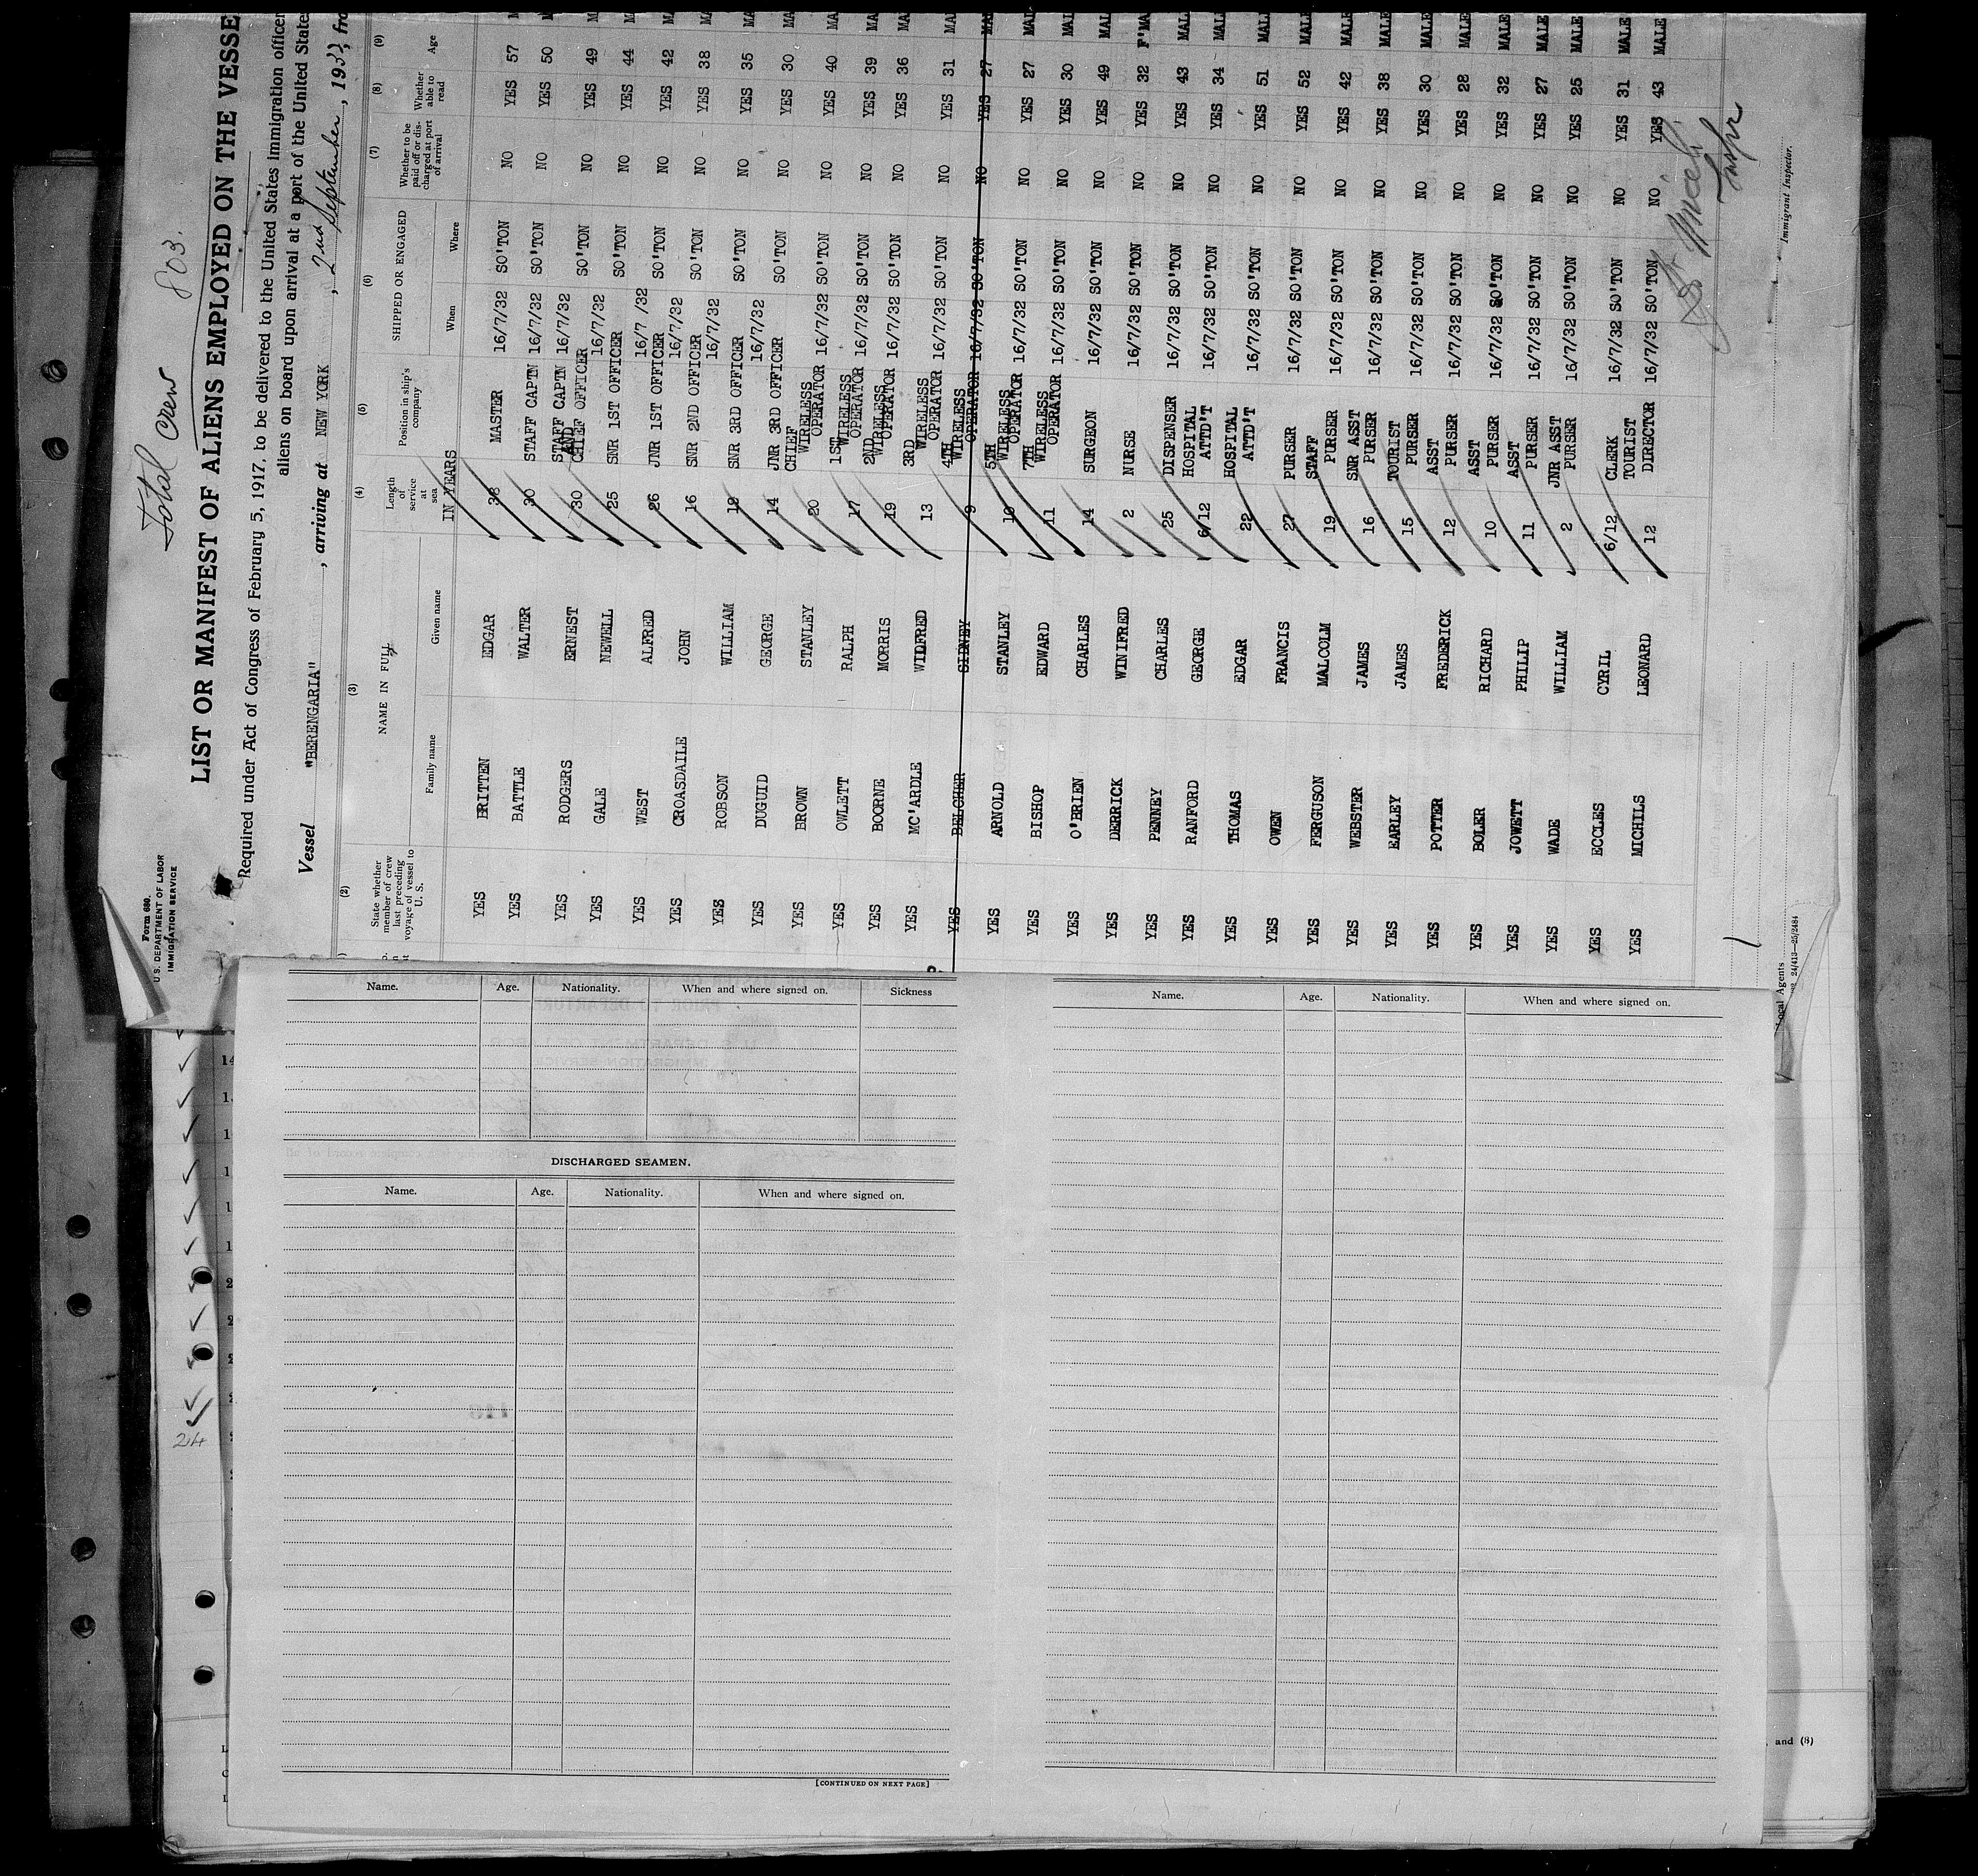 Total Crew 803.
Form 680.
U.S. DEPARTMENT OF LABOR
IMMIGRATION SERVICE
LIST OR MANIFEST OF ALIENS EMPLOYED ON THE VESSE
Required under Act of Congress of February 5, 1917, to be delivered to the United States immigration officer
aliens on board upon arrival at a port of the United State
Vessel "BERENGARIA", arriving at NEW YORK, 2nd September, 1932, fro
(2) (3) (4) (5) (6) (7) (8) (9)
State whether member of crew last preceding voyage of vessel to U. S. NAME IN FULL Length of service at sea Position in ship's company SHIPPED OR ENGAGED Whether to be paid off or discharged at port of arrival Whether able to read Age
Family name Given name When Where
IN YEARS
YES BRITTEN EDGAR 38 MASTER 16/7/32 SO'TON NO YES 57 M
YES BATTLE WALTER 30 STAFF CAPTN 16/7/32 SO'TON NO YES 50 M
YES RODGERS ERNEST 30 STAFF CAPTN AND CHIEF OFFICER 16/7/32 SO'TON NO YES 49 M
YES GALE NEWELL 25 SNR 1ST OFFICER 16/7/32 SO'TON NO YES 44 M
YES WEST ALFRED 26 JNR 1ST OFFICER 16/7/32 SO'TON NO YES 42 M
YES CROASDAILE JOHN 16 SNR 2ND OFFICER 16/7/32 SO'TON NO YES 38 M
YES ROBSON WILLIAM SNR 3RD OFFICER 16/7/32 SO'TON NO YES 35 MA
YES DUGUID GEORGE 14 JNR 3RD OFFICER 16/7/32 SO'TON NO YES 30 MA
YES BROWN STANLEY 20 CHIEF WIRELESS OPERATOR 16/7/32 SO'TON NO YES 40 MA
YES OWLETT RALPH 17 1ST WIRELESS OPERATOR 16/7/32 SO'TON NO YES 39 MA
YES BOORNE MORRIS 19 2ND WIRELESS OPERATOR 16/7/32 SO'TON NO YES 36 MA
YES MC'ARDLE WILDFRED 13 3RD WIRELESS OPERATOR 16/7/32 SO'TON NO YES 31 MA
YES BELCHER SIDNEY 9 4TH WIRELESS OPERATOR 16/7/32 SO'TON NO YES 27 MA
YES ARNOLD STANLEY 10 5TH WIRELESS OPERATOR 16/7/32 SO'TON NO YES 27 MAL
YES BISHOP EDWARD 11 7TH WIRELESS OPERATOR 16/7/32 SO'TON NO YES 30 MAL
YES O'BRIEN CHARLES 14 SURGEON 16/7/32 SO'TON NO YES 49 MAL
YES DERRICK WINIFRED 2 NURSE 16/7/32 SO'TON NO YES 32 F'MA
YES PENNEY CHARLES 25 DISPENSER 16/7/32 SO'TON NO YES 43 MAL
YES RANFORD GEORGE 6/12 HOSPITAL ATTD'T 16/7/32 SO'TON NO YES 34 MAL
YES THOMAS EDGAR 22 HOSPITAL ATTD'T 16/7/32 SO'TON NO YES 51 MAL
YES OWEN FRANCIS 27 PURSER 16/7/32 SO'TON NO YES 52 MAL
YES FERGUSON MALCOLM 19 STAFF PURSER 16/7/32 SO'TON NO YES 42 MALE
YES WEBSTER JAMES 16 SNR ASST PURSER 16/7/32 SO'TON NO YES 38 MALE
YES EARLEY JAMES 15 TOURIST PURSER 16/7/32 SO'TON NO YES 30 MALE
YES POTTER FREDERICK 12 ASST PURSER 16/7/32 SO'TON NO YES 28 MALE
YES BOLER RICHARD 10 ASST PURSER 16/7/32 SO'TON NO YES 32 MALE
YES JOWETT PHILIP 11 ASST PURSER 16/7/32 SO'TON NO YES 27 MALE
YES WADE WILLIAM 2 JNR ASST PURSER 16/7/32 SO'TON NO YES 25 MALE
YES ECCLES CYRIL 6/12 CLERK 16/7/32 SO'TON NO YES 31 MALE
YES MICHILS LEONARD 12 TOURIST DIRECTOR 16/7/32 SO'TON NO YES 43 MALE
Inspr
Immigrant Inspector.
Local Agents
24/413—25/2484
Name. Age. Nationality. When and where signed on. Sickness
DISCHARGED SEAMEN.
Name. Age. Nationality. When and where signed on.
[CONTINUED ON NEXT PAGE]
Name. Age. Nationality. When and where signed on.
24
, and (8)